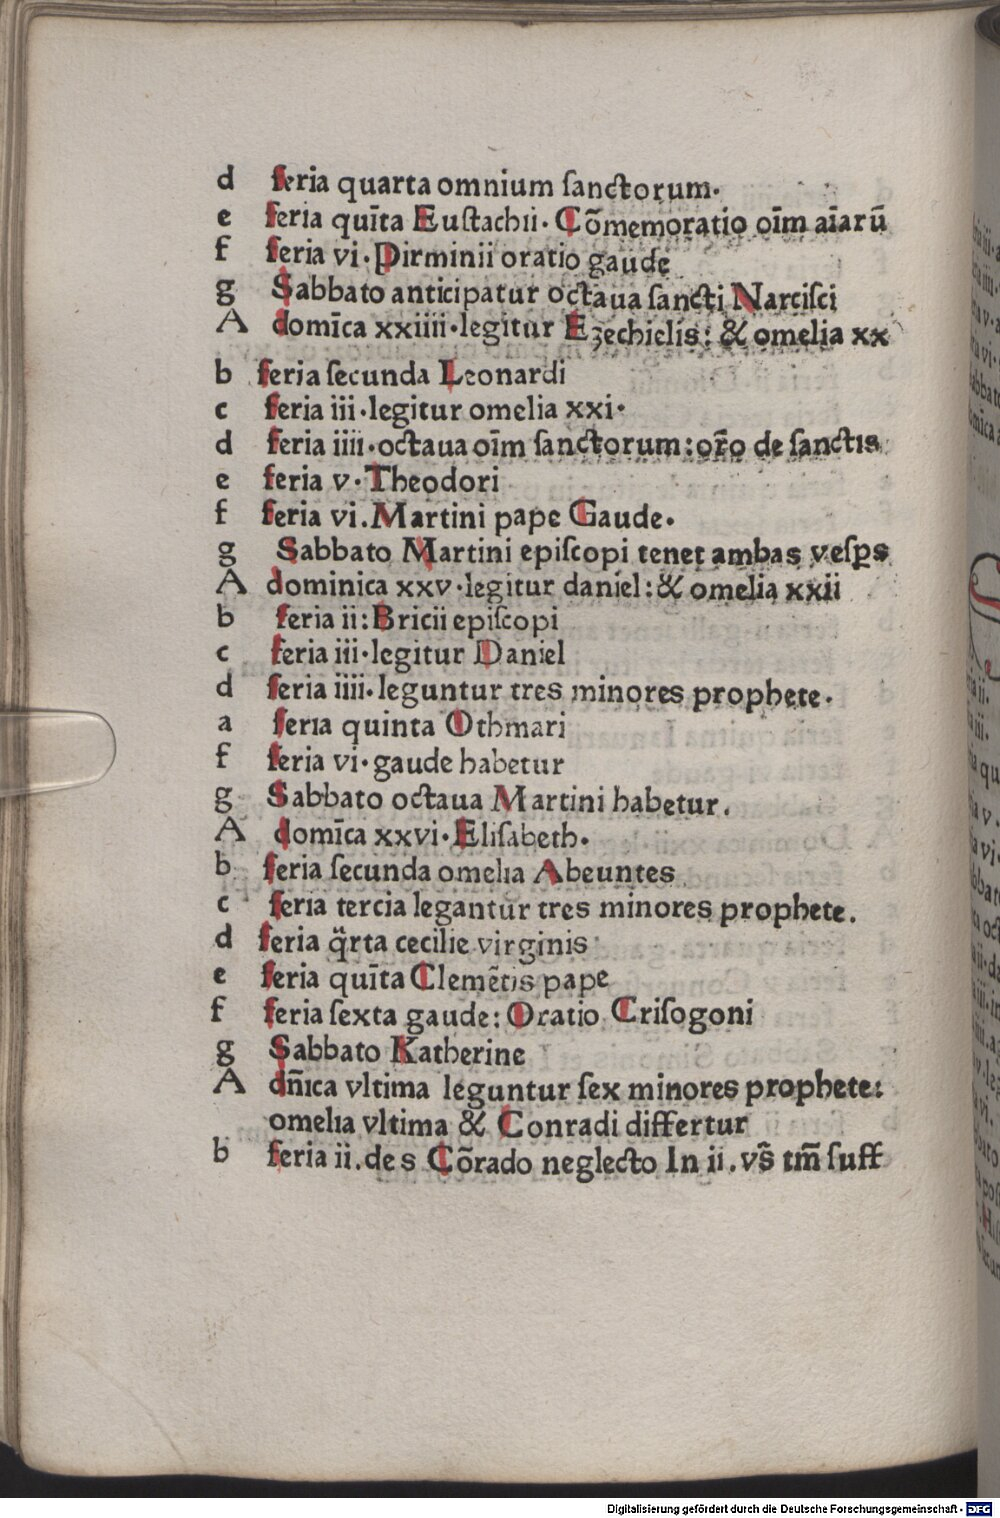 d feria quarta omnium ſanctorum.
e feria quīta Euſtachii. Cōmemoratio oīm aīarū
f feria vi. Pirminii oratio gaude
g Sabbato anticipatur octaua ſancti Narciſci
A domīca xxiiii. legitur Ezechielis: & omelia xx
b feria ſecunda Leonardi
c feria iii. legitur omelia xxi.
d feria iiii. octaua oīm ſanctorum: or̄o de ſanctis
e feria v. Theodori
f feria vi. Martini pape Gaude.
g Sabbato Martini epiſcopi tenet ambas veſꝑs
A dominica xxv. legitur daniel: & omelia xxii
b feria ii: Bricii epiſcopi
c feria iii. legitur Daniel
d feria iiii. leguntur tres minores prophete.
a feria quinta Othmari
f feria vi. gaude habetur
g Sabbato octaua Martini habetur.
A domīca xxvi. Eliſabeth.
b feria ſecunda omelia Abeuntes
c feria tercia legantur tres minores prophete.
d feria q̈rta cecilie virginis
e feria quīta Clemētis pape
f feria ſexta gaude: Oratio Criſogoni
g Sabbato Katherine
A dn̄ica vltima leguntur ſex minores prophete:
omelia vltima & Conradi differtur
b feria ii. de s Cōrado neglecto In ii. vs̄ tm̄ ſuff
Digitalisierung gefördert durch die Deutsche Forschungsgemeinschaft - DFG